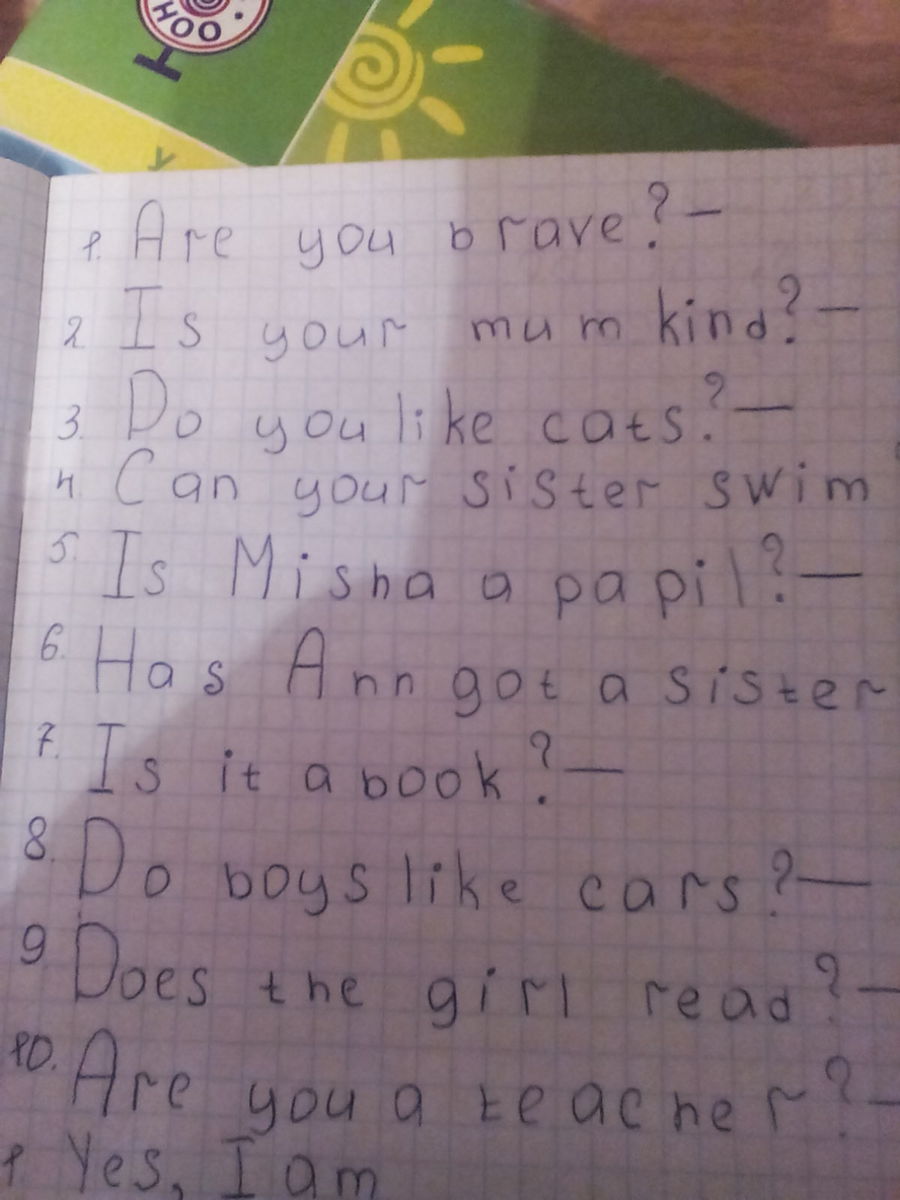 HOO
1. Are you brave? —
2. Is your mum kind? —
3. Do you like cats? —
4. Can your sister swim
5. Is Misha a papil? —
6. Has Ann got a sister
7. Is it a book? —
8. Do boys like cars? —
9 Does the girl read? —
10. Are you a teacher? —
1 Yes, I am